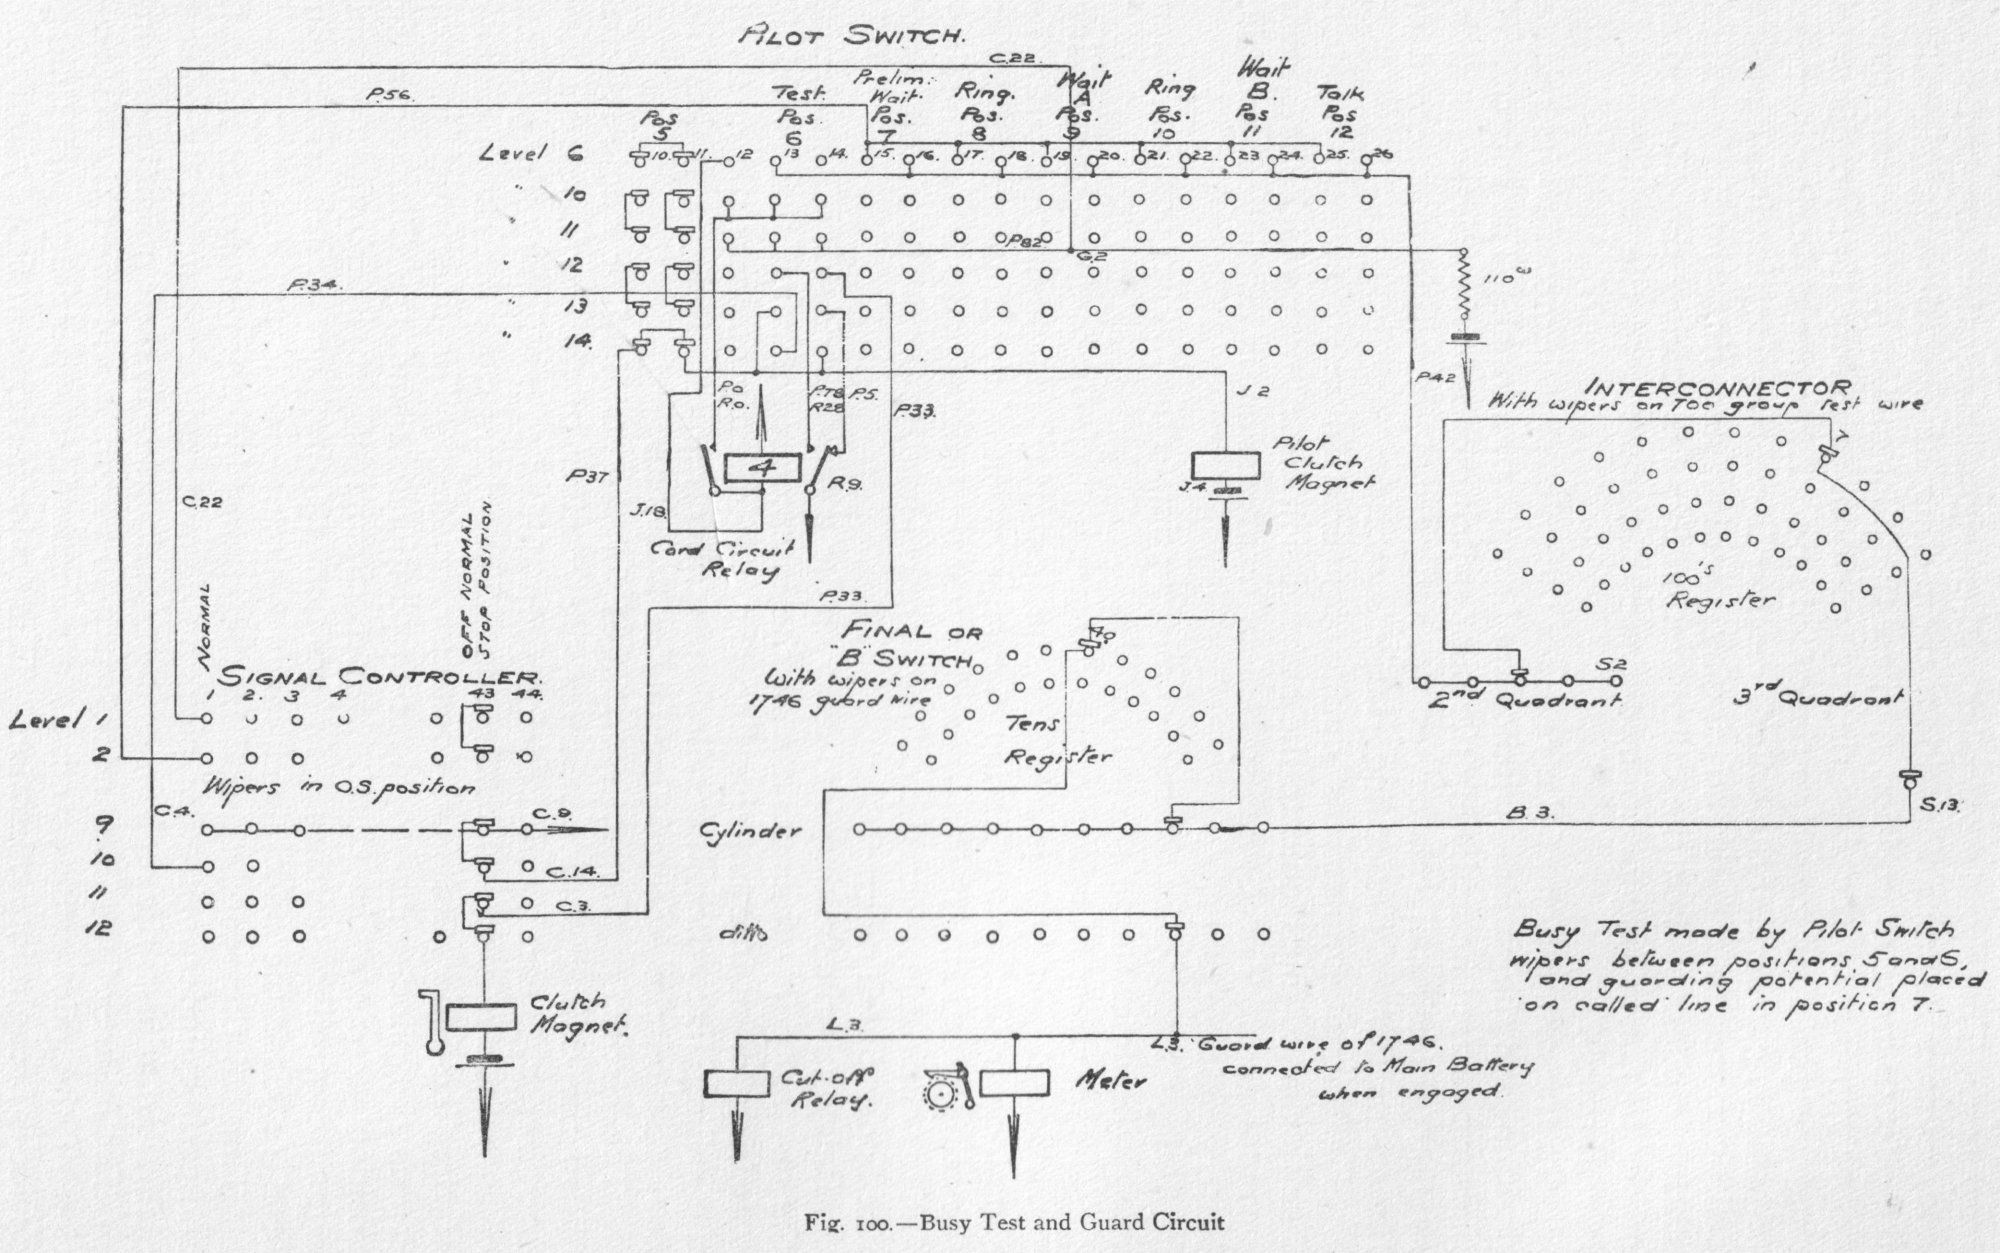 PILOT SWITCH.
C.22.
P.56.
Test. Pos. 6
Prelim: Wait. Pos. 7
Ring. Pos. 8
Wait A Pos. 9
Ring Pos. 10
Wait B. Pos 11
Talk Pos 12
Pos 5
Level 6 10. 11. 12 13 14. 15. 16. 17. 18. 19. 20. 21. 22. 23 24. 25. 26
" 10
" 11
P82
G.2
" 12
110ω
P.34.
" 13
" 14.
P.0 R.0.
P.78 R28
P.5.
P.33.
J 2
P42
INTERCONNECTOR
With wipers on 700 group test wire
7
Pilot Clutch Magnet
J.4
4
R9.
P37
J.18.
C.22
Cord Circuit Relay
100's Register
P.33.
NORMAL
OFF NORMAL
STOP POSITION
FINAL OR
"B" SWITCH
With wipers on
1746 guard wire
40
Tens
Register
S2
2nd Quadrant
3rd Quadrant
SIGNAL CONTROLLER.
1 2. 3 4 43 44.
Level 1
2
Wipers in O.S. position
C.4.
C.9.
9
Cylinder
B.3.
S.13.
10
C.14.
11
C.3.
12
ditto
Busy Test made by Pilot Switch
wipers between positions 5 and 6,
and guarding potential placed
on called line in position 7.
Clutch
Magnet.
L.3.
L3. Guard wire of 1746.
connected to Main Battery
when engaged.
Cut-off
Relay.
Meter
Fig. 100.—Busy Test and Guard Circuit